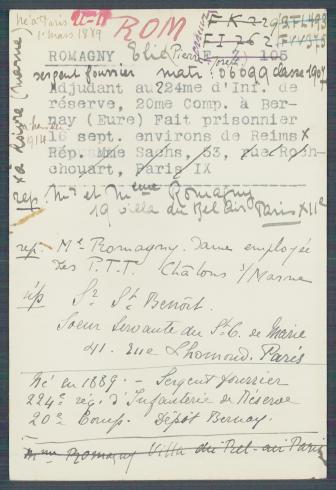 né à Paris
1. mars 1889
ROM
ROMAGNY Elie Pierre
Joseph
105
sergent fourrier matr: 06099 classe 1907
Adjudant au 224me d'Inf. de
réserve, 20me Comp. à Ber-
nay (Eure) Fait prisonnier
16 sept. environs de Reims
Rép. Mme Sachs, 53, rue Roch-
chouart, Paris IX
rep. Mr et Mme Romagny
19 villa du Bel air Paris XIIe
rep Me Romagny. Dame employée
des P.T.T. Châlons s/Marne
rép Sr St Benoît.
Soeur Servante du St C. de Marie
41. rue Lhomond. Paris
Né en 1889. - Sergent fourrier
224e rég. d'Infanterie de Réserve
20e Comp. Dépôt Bernay.
Mme Romagny Villa du Bel-air Paris